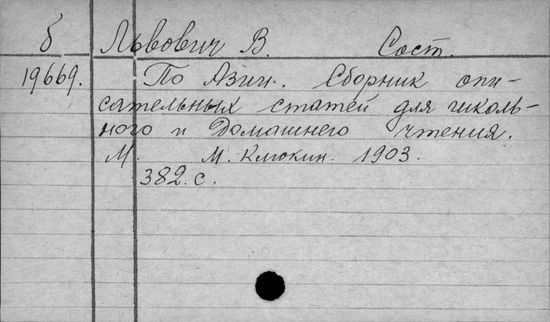 б Львович В. Сост.
19669. По Азии. Сборник опи-
сательных статей для школь-
ного и Домашнего чтения.
М. М. Клюкин. 1903.
382.с.